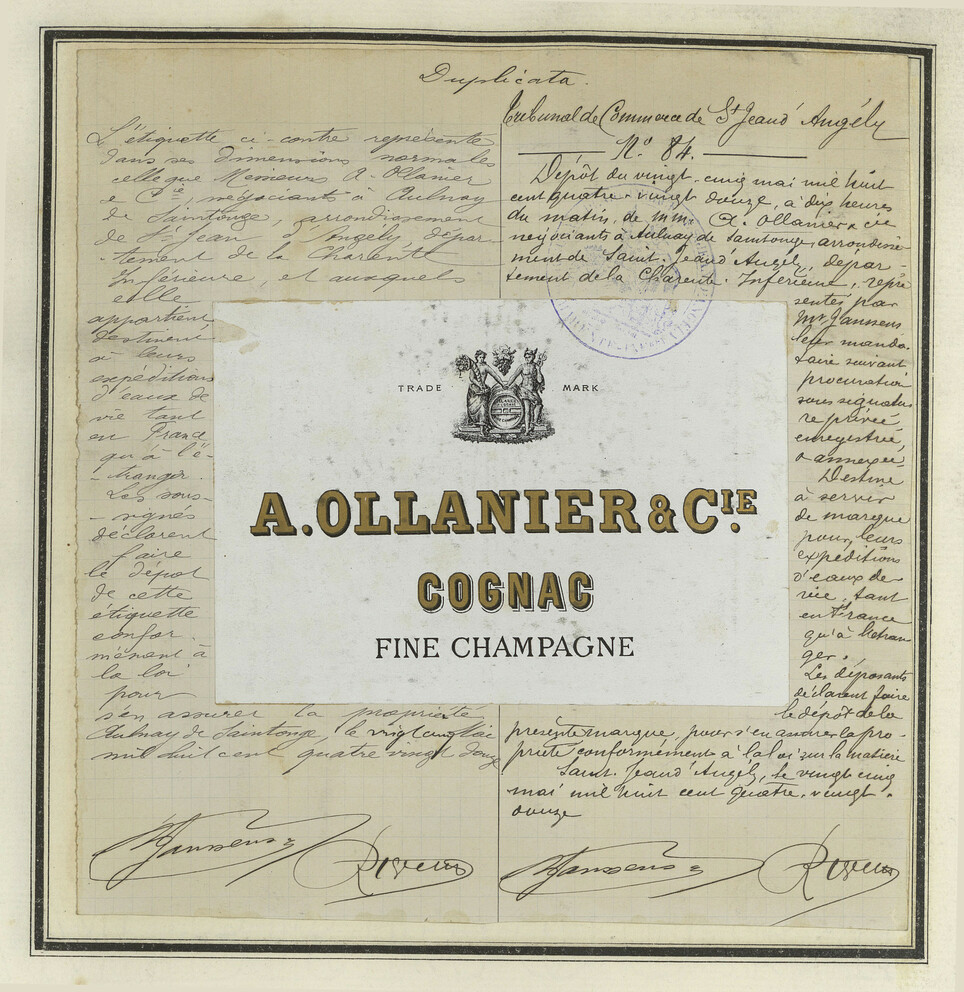 Duplicata.
L'étiquette ci-contre représente
dans ses dimensions normales
celle que Messieurs A. Ollanier
& Cie, négociants à Aulnay
de Saintonge, arrondissement
de St Jean d'Angély dépar-
tement de la Charente
Inférieure, et auxquels
elle
appartient
destinent
à leurs
expéditions
d'eaux de
vie tant
en France
qu'à l'é-
-tranger.
Les sous-
-signés
déclarent
faire
le dépôt
de cette
étiquette
confor-
mément à
la loi
pour
s'en assurer la propriété
Aulnay de Saintonge, le vingt cinq Mai
mil huit cent quatre vingt douze
Tribunal de Commerce de St Jean d'Angély
No 84.
Dépôt du vingt-cinq mai mil huit
cent quatre-vingt douze, à dix heures
du matin, de MM. A. Ollanier & Cie
négociants à Aulnay de Saintonge, arrondisse-
ment de Saint-Jean d'Angély, dépar-
tement de la Charente-Inférieure, repré
sentés par
Mr Janssens
leur manda-
taire suivant
procuration
sous signatu
re privée
enregistrée,
annexée.
Destiné
à servir
de marque
pour leurs
expéditions
d'eaux de
vie, tant
en France
qu'à l'étran
ger.
Les déposants
déclarent faire
le dépôt de la
présente marque, pour s'en assurer la pro-
priété conformément à la loi sur la matière
Saint-Jean d'Angély, le vingt cinq
mai mil huit cent quatre-vingt-
douze
TRADE MARK
A. OLLANIER & CIE.
COGNAC
FINE CHAMPAGNE
Janssens
Janssens